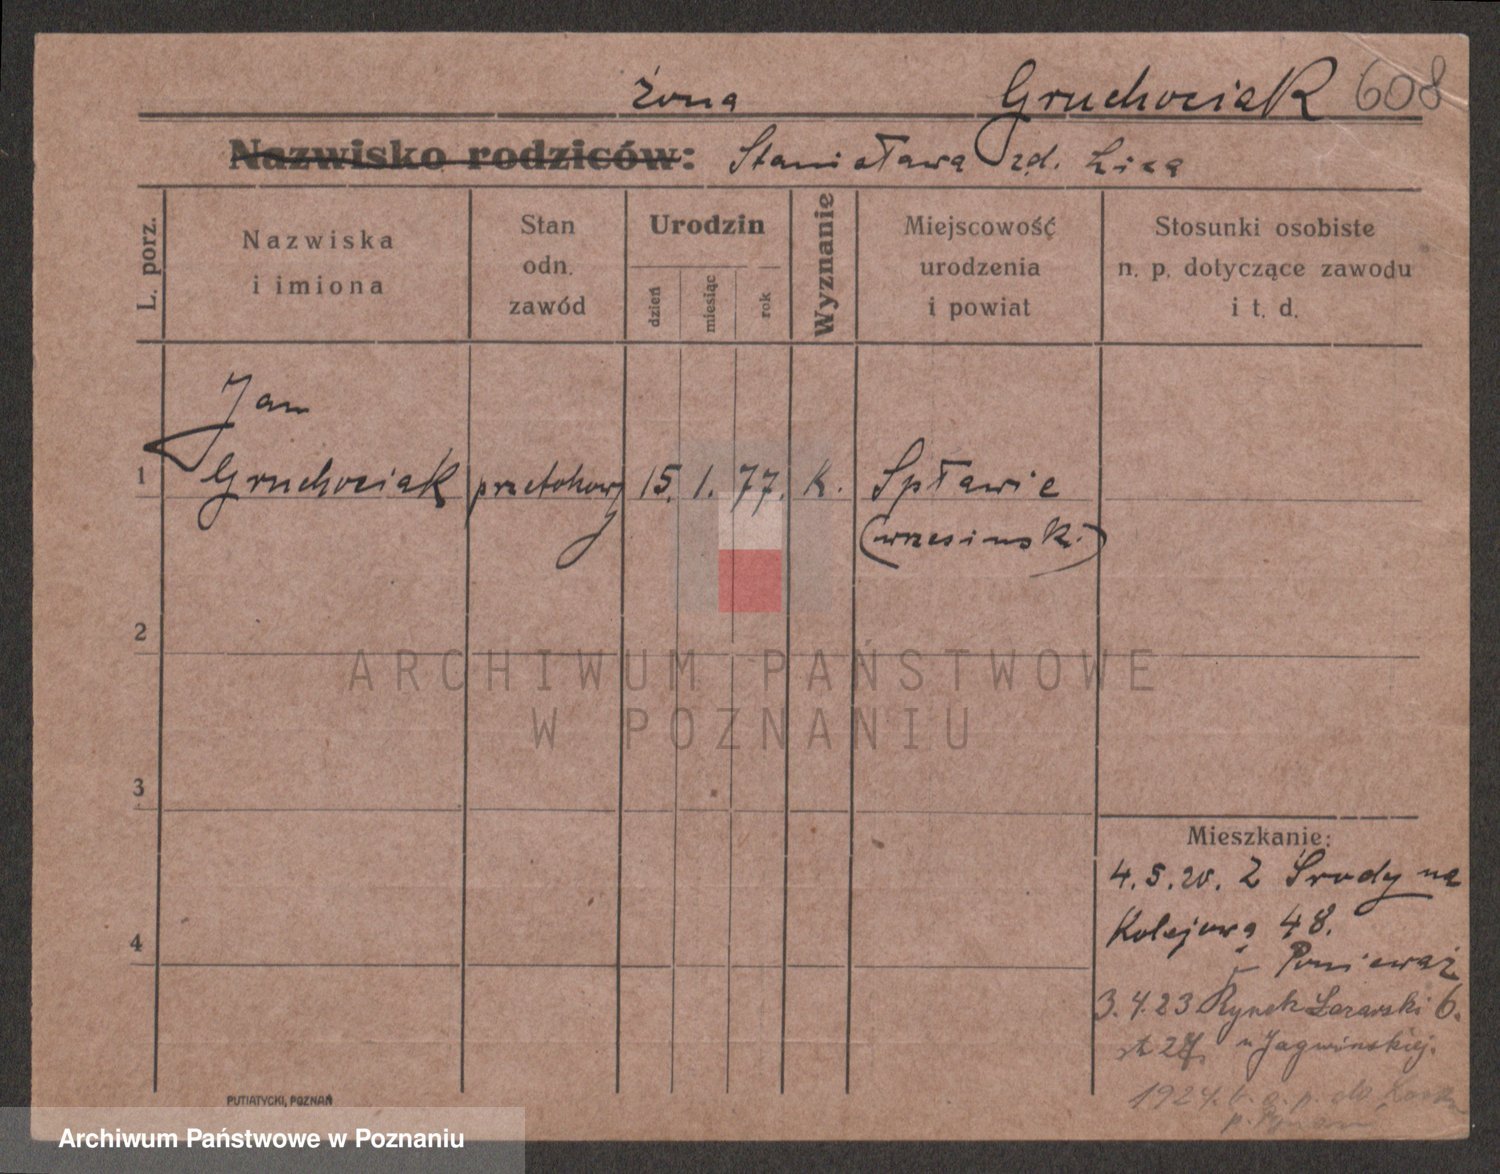 żona Gruchociak 608
Nazwisko rodziców: Stanisława zd. Lisa
L. porz.
Nazwiska
i imiona
Stan
odn.
zawód
Urodzin
dzień
miesiąc
rok
Wyznanie
Miejscowość
urodzenia
i powiat
Stosunki osobiste
n. p. dotyczące zawodu
i t. d.
Jan
1 Gruchociak przetokowy 15. 1. 77. K. Spławie
(wrzesiński)
2
ARCHIWUM PAŃSTWOWE
W POZNANIU
3
4
Mieszkanie:
4.5.20. Z Środy na
Kolejową 48.
Ponieważ
3.4.23 Rynek Łazarski 6.
u Jagwińskiej.
1924. p. do
PUTIATYCKI, POZNAŃ
Archiwum Państwowe w Poznaniu